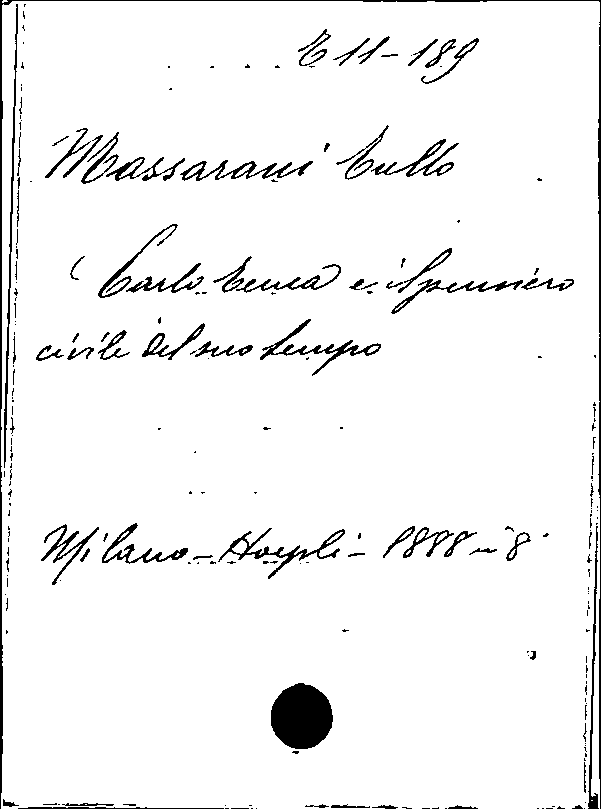 E 11-189
Massarani Tullo
Carlo Tenca e il pensiero
civile del suo tempo
Milano - Hoepli - 1888 in 8°